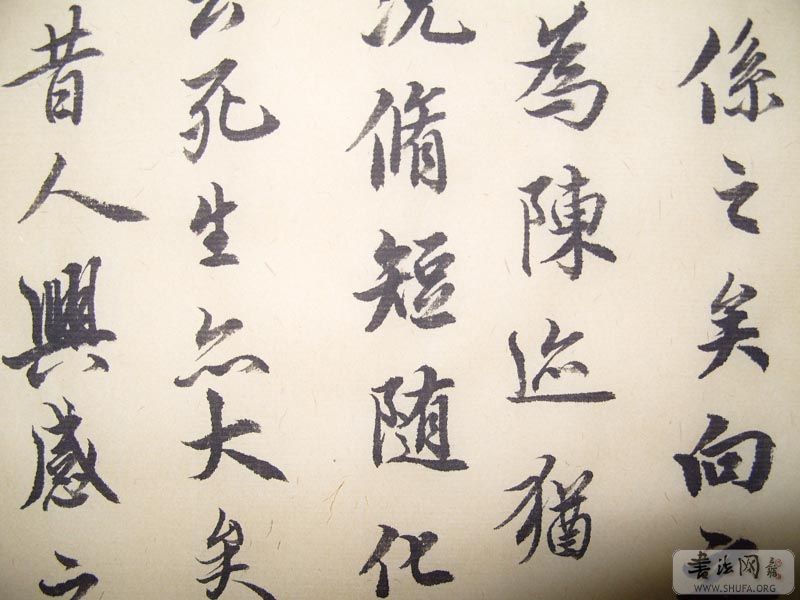 係之矣向之
為陳迹猶
況脩短隨化
云死生亦大矣
昔人興感之
書法网
WWW.SHUFA.ORG